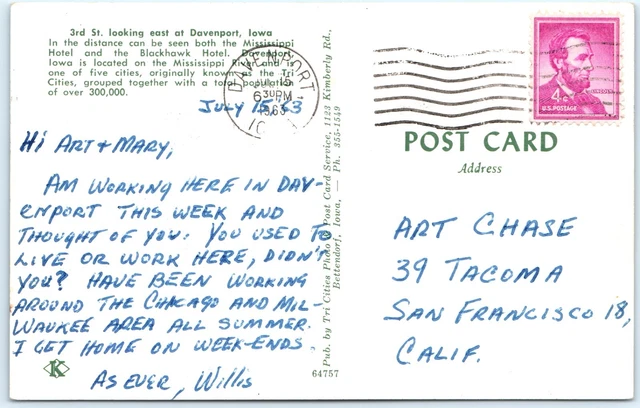 3rd St. looking east at Davenport, Iowa
In the distance can be seen both the Mississippi
Hotel and the Blackhawk Hotel. Davenport,
Iowa is located on the Mississippi River and is
one of five cities, originally known as the Tri
Cities, grouped together with a total population
of over 300,000.
DAVENPORT
JUL 15
630 PM
1963
JULY 15, 63
Hi ART & MARY,
AM WORKING HERE IN DAV-
ENPORT THIS WEEK AND
THOUGHT OF YOU. YOU USED TO
LIVE OR WORK HERE, DIDN'T
YOU? HAVE BEEN WORKING
AROUND THE CHICAGO AND MIL-
WAUKEE AREA ALL SUMMER.
I GET HOME ON WEEK-ENDS.
AS EVER, Willis
K
Pub. by Tri Cities Photo & Post Card Service, 1123 Kimberly Rd.,
Bettendorf, Iowa. — Ph. 355-1549
64757
4¢
U.S. POSTAGE
POST CARD
Address
ART CHASE
39 TACOMA
SAN FRANCISCO 18,
CALIF.